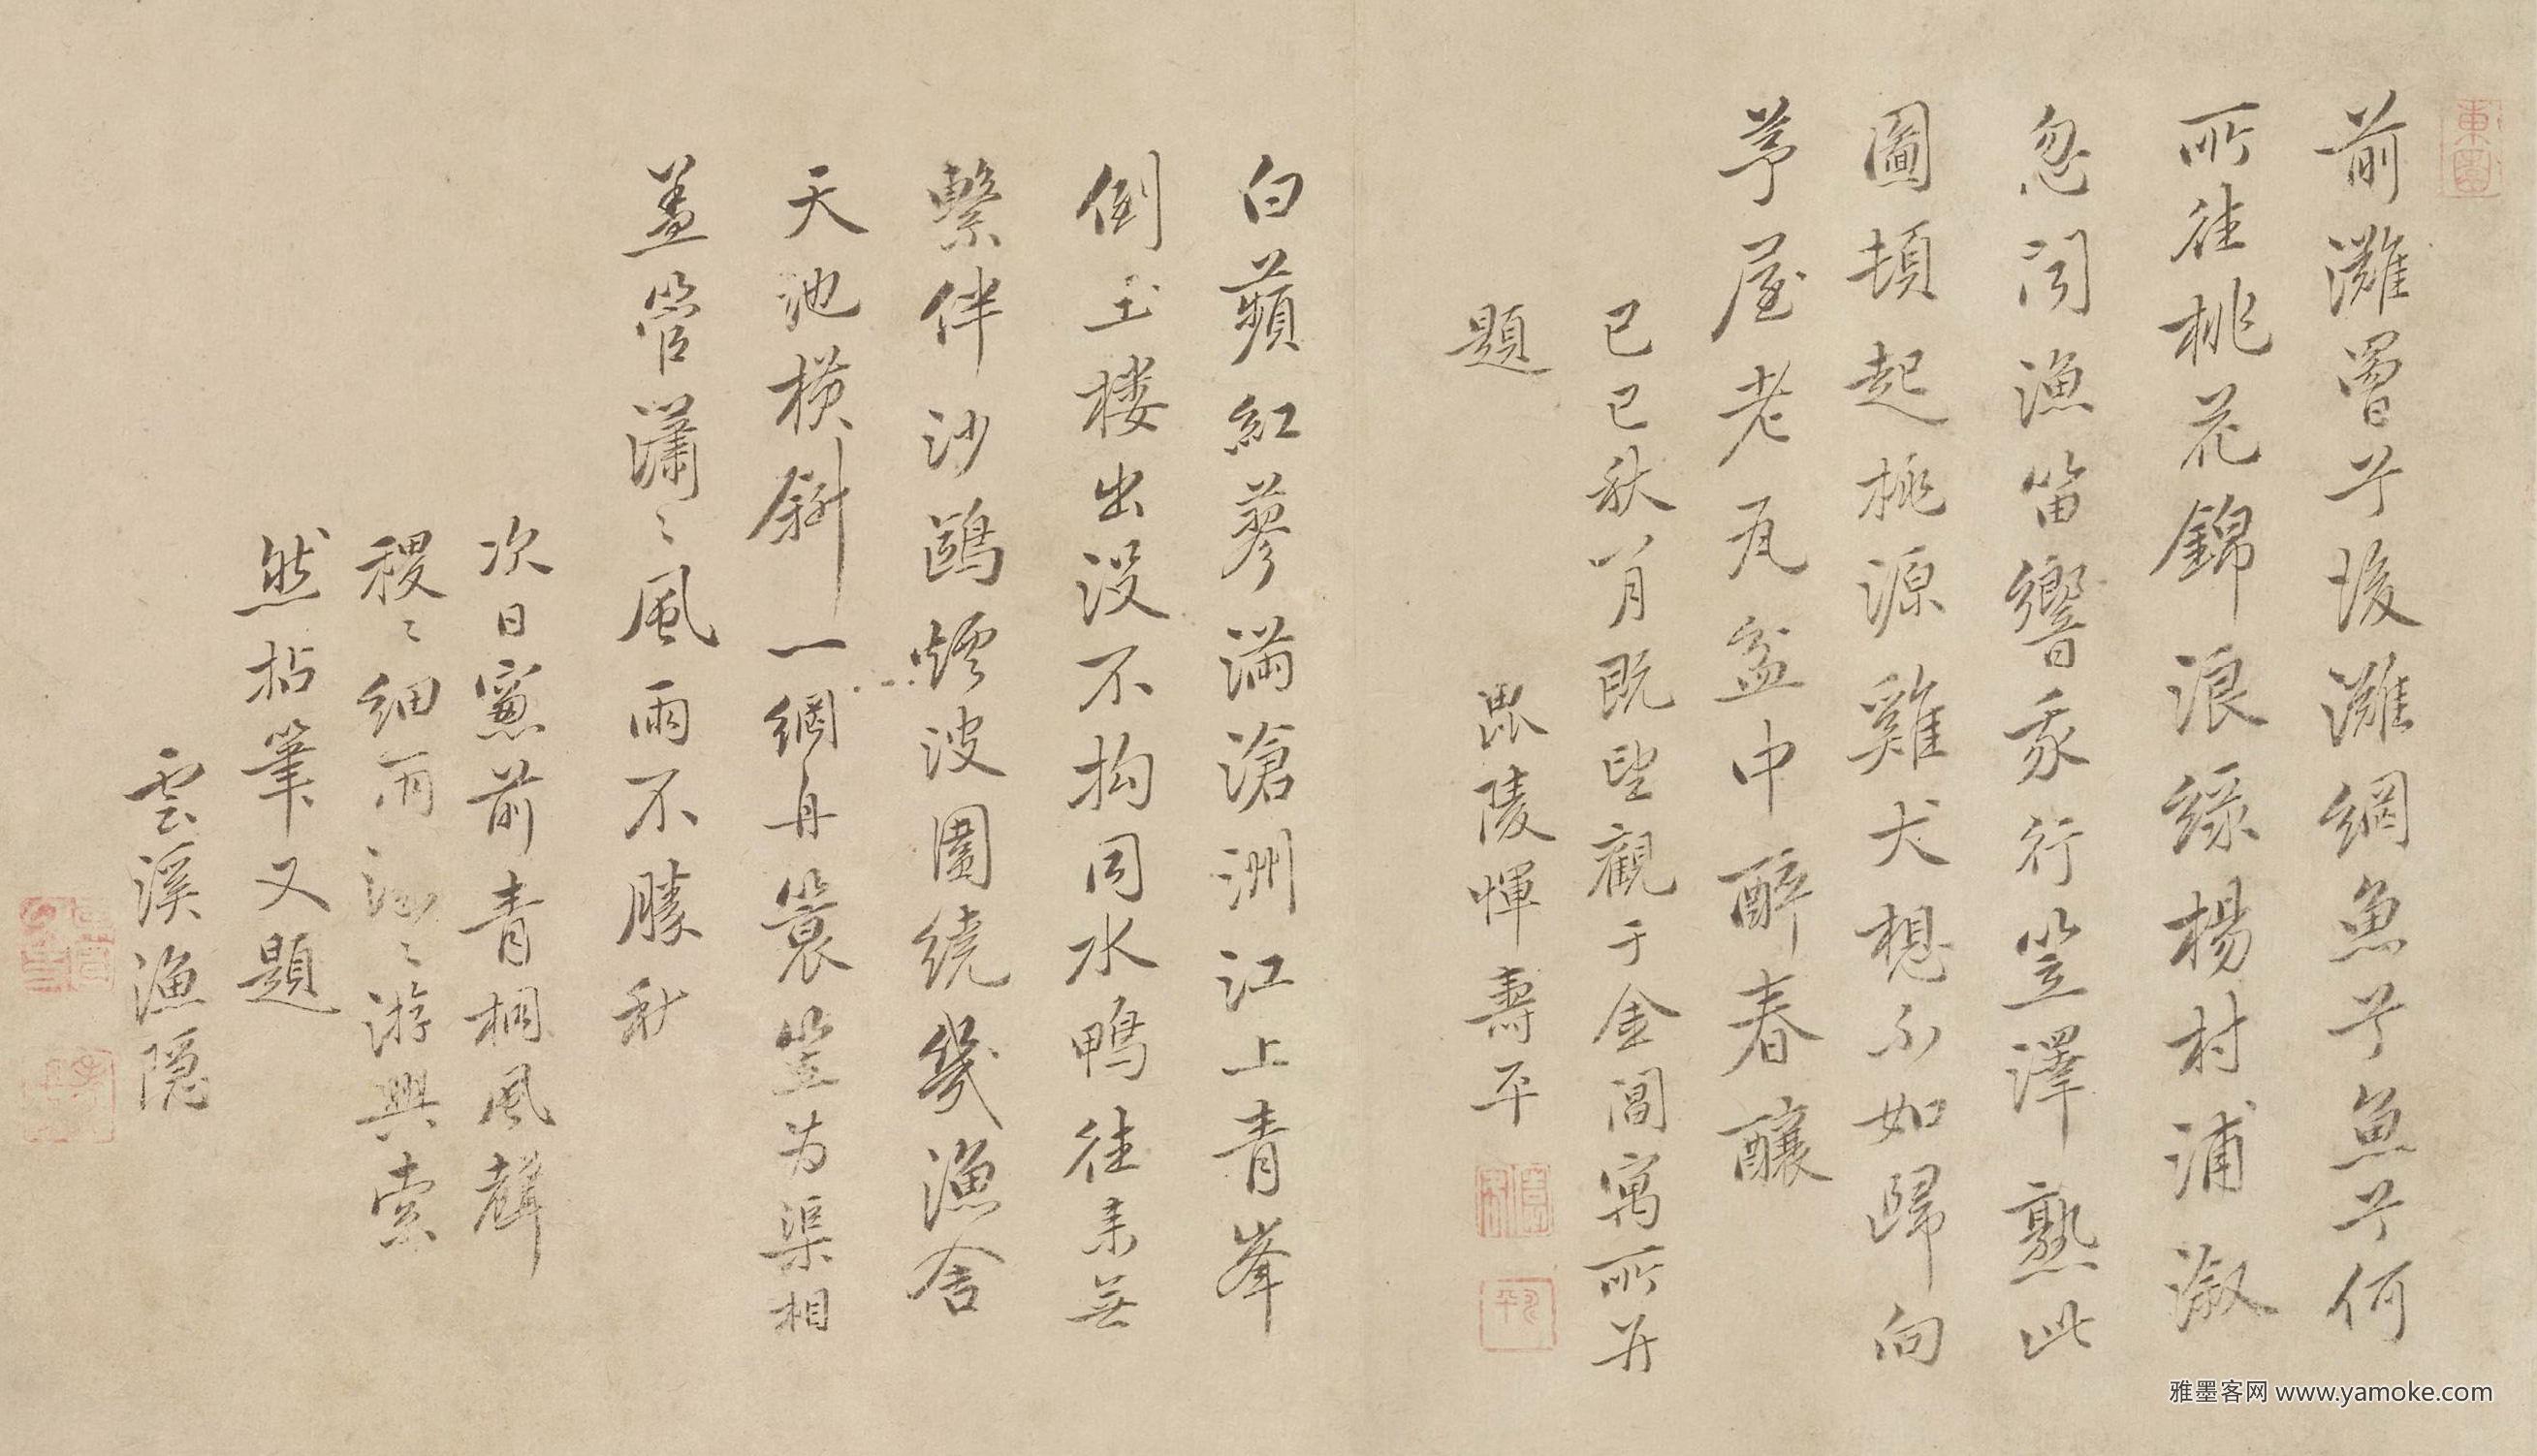 東園
前灘罾兮後灘網魚兮魚兮何
所往桃花錦浪綠楊村浦溆
忽聞漁笛響我行笠澤熟此
圖頓起桃源雞犬想不如歸向
茅屋老瓦盆中醉春釀
己巳秋八月既望觀于金閶寓所并
題 毘陵惲壽平
白蘋紅蓼滿滄洲江上青峯
倒玉樓出没不拘同水鴨往来無
繫伴沙鷗煙波圍繞幾漁舍
天池橫斜一網舟簑笠为渠相
蓋管瀟〻風雨不勝秋
次日窻前青桐風聲
稷〻細雨〻游興索
然拈筆又題
雲溪漁隠
雅墨客网 www.yamoke.com